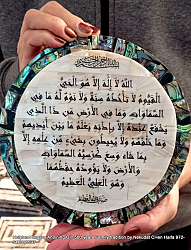 الله لا إله إلا هو الحي
القيوم لا تأخذه سنة ولا نوم له ما في
السماوات وما في الأرض من ذا الذي
يشفع عنده إلا بإذنه يعلم ما بين أيديهم
وما خلفهم ولا يحيطون بشيء من علمه إلا
بما شاء وسع كرسيه السماوات
والأرض ولا يؤوده حفظهما
وهو العلي العظيم
by Nekudat Chen Haifa 972-